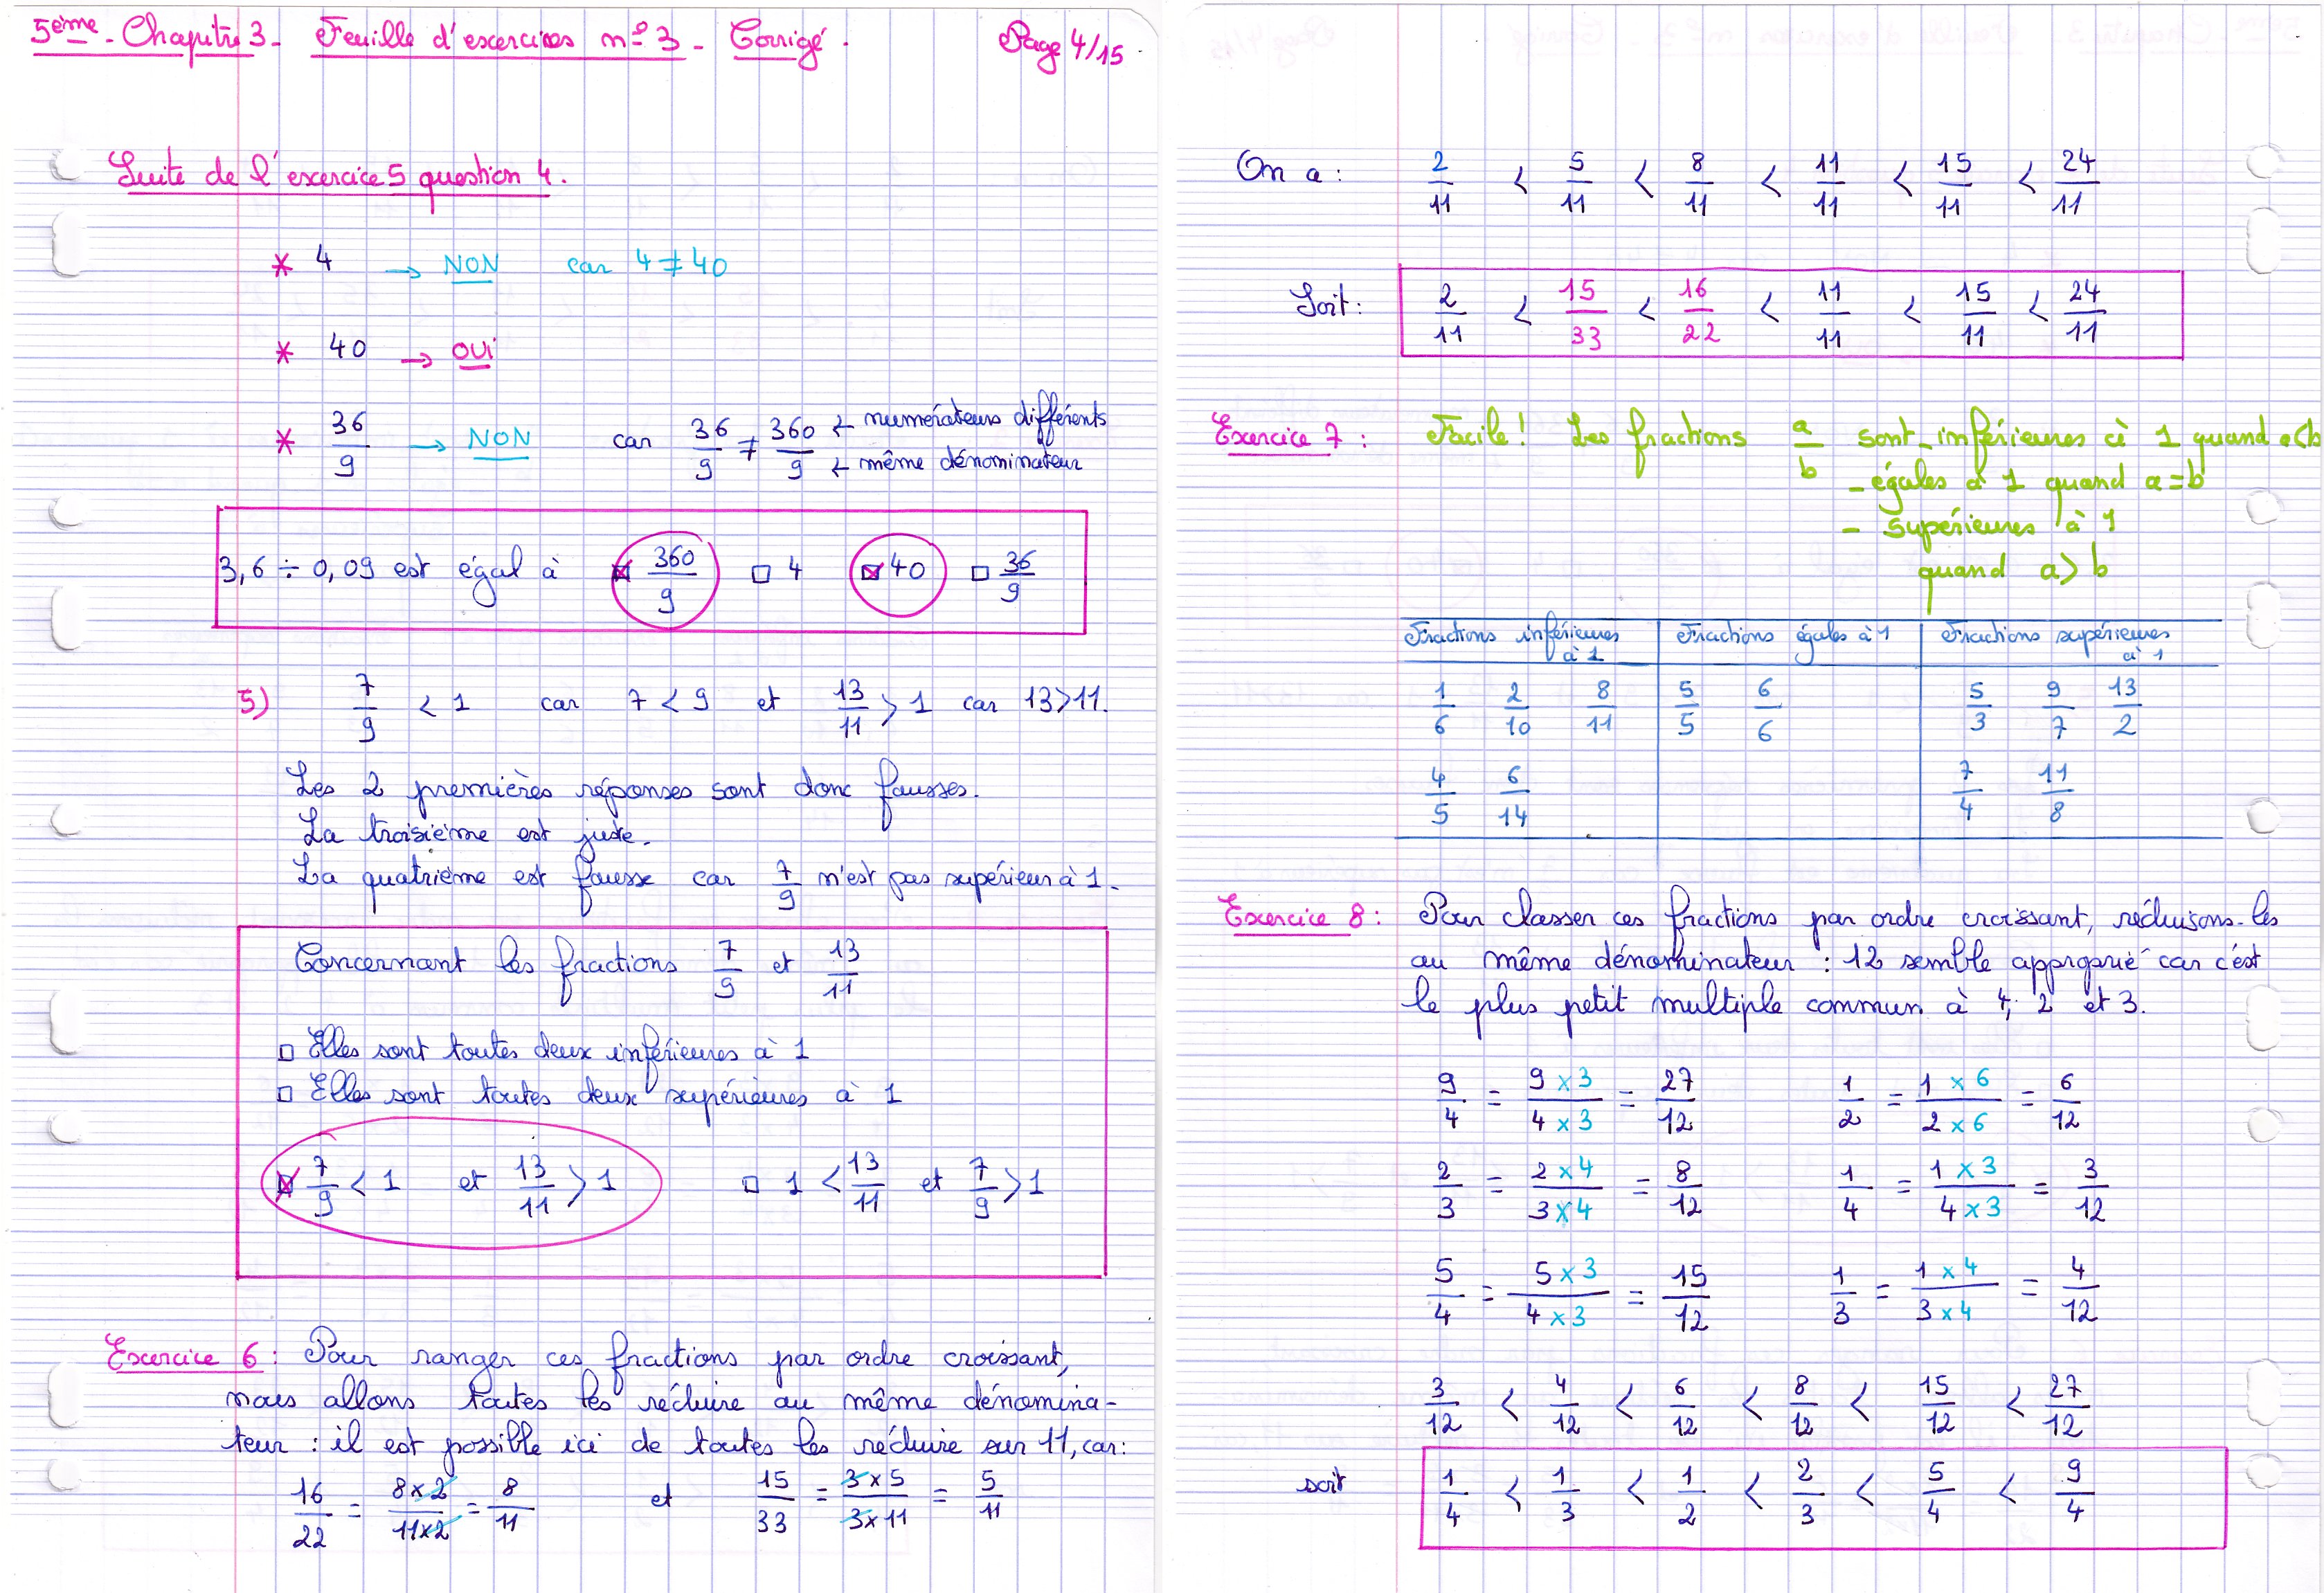 5ème - Chapitre 3 - Feuille d'exercices n° 3 - Corrigé. Page 4/15
Suite de l'exercice 5 question 4.
* 4 → NON car 4 ≠ 40
* 40 → OUI
* 36/9 → NON car 36/9 ≠ 360/9 ← numérateurs différents
← même dénominateur
3,6 ÷ 0,09 est égal à ☒ 360/9 □ 4 ☒ 40 □ 36/9
5) 7/9 < 1 car 7 < 9 et 13/11 > 1 car 13 > 11.
Les 2 premières réponses sont donc fausses.
La troisième est juste.
La quatrième est fausse car 7/9 n'est pas supérieur à 1.
Concernant les fractions 7/9 et 13/11
□ Elles sont toutes deux inférieures à 1
□ Elles sont toutes deux supérieures à 1
☒ 7/9 < 1 et 13/11 > 1 □ 1 < 13/11 et 7/9 > 1
Exercice 6 : Pour ranger ces fractions par ordre croissant,
nous allons toutes les réduire au même dénomina-
teur : il est possible ici de toutes les réduire sur 11, car :
16/22 = 8×2/11×2 = 8/11 et 15/33 = 3×5/3×11 = 5/11
On a : 2/11 < 5/11 < 8/11 < 11/11 < 15/11 < 24/11
Soit : 2/11 < 15/33 < 16/22 < 11/11 < 15/11 < 24/11
Exercice 7 : Facile ! Les fractions a/b sont - inférieures à 1 quand a<b
- égales à 1 quand a=b
- supérieures à 1
quand a>b
Fractions inférieures à 1 Fractions égales à 1 Fractions supérieures à 1
1/6 2/10 8/11 5/5 6/6 5/3 9/7 13/2
4/5 6/14 7/4 11/8
Exercice 8 : Pour classer ces fractions par ordre croissant, réduisons-les
au même dénominateur : 12 semble approprié car c'est
le plus petit multiple commun à 4, 2 et 3.
9/4 = 9×3/4×3 = 27/12 1/2 = 1×6/2×6 = 6/12
2/3 = 2×4/3×4 = 8/12 1/4 = 1×3/4×3 = 3/12
5/4 = 5×3/4×3 = 15/12 1/3 = 1×4/3×4 = 4/12
3/12 < 4/12 < 6/12 < 8/12 < 15/12 < 27/12
soit 1/4 < 1/3 < 1/2 < 2/3 < 5/4 < 9/4